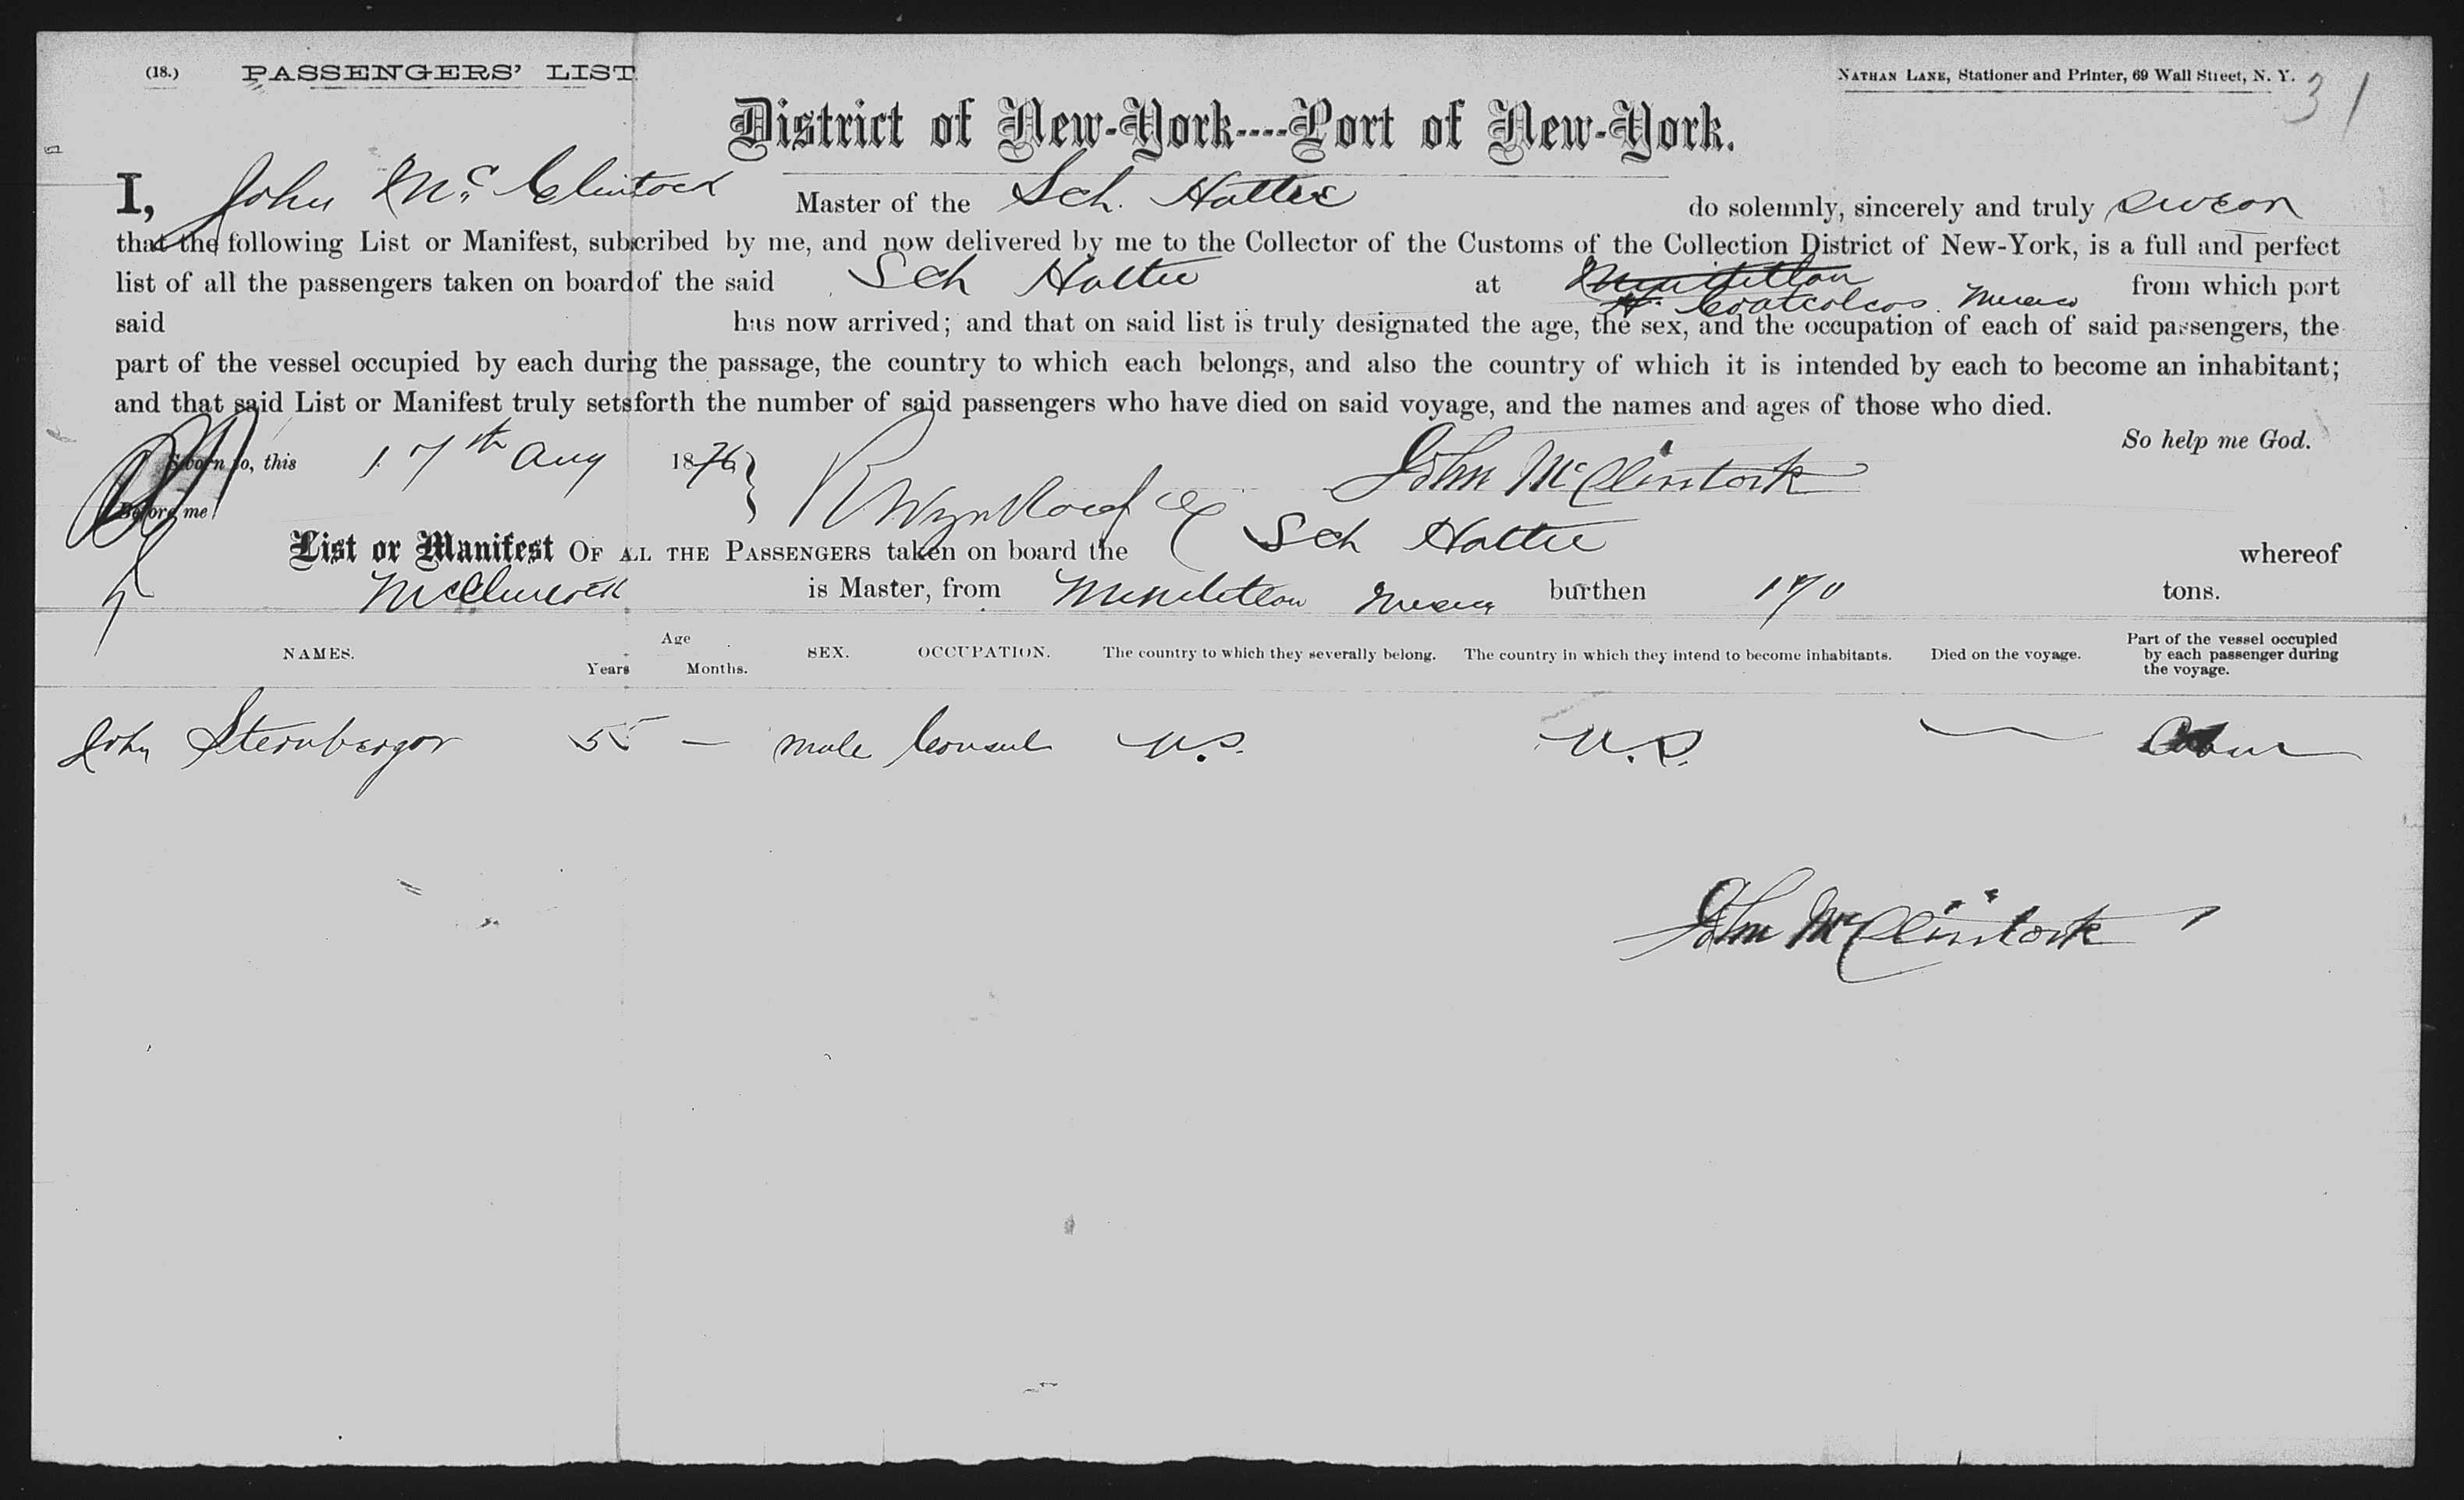 (18.) PASSENGERS' LIST. NATHAN LANE, Stationer and Printer, 69 Wall Street, N. Y. 31
District of New-York----Port of New-York.
I, John Mc. Clintock Master of the Sch. Hattie do solemnly, sincerely and truly swear
that the following List or Manifest, subscribed by me, and now delivered by me to the Collector of the Customs of the Collection District of New-York, is a full and perfect
list of all the passengers taken on board of the said Sch Hattie at Minatitlan from which port
Coatcolcos. Mexico
said has now arrived; and that on said list is truly designated the age, the sex, and the occupation of each of said passengers, the
part of the vessel occupied by each during the passage, the country to which each belongs, and also the country of which it is intended by each to become an inhabitant;
and that said List or Manifest truly sets forth the number of said passengers who have died on said voyage, and the names and ages of those who died.
So help me God.
Sworn to, this 17th Aug 1876 John McClintock
Before me
List or Manifest OF ALL THE PASSENGERS taken on board the Sch Hattie whereof
McClintock is Master, from Minatitlan Mexico burthen 170 tons.
NAMES. Age Years Months. SEX. OCCUPATION. The country to which they severally belong. The country in which they intend to become inhabitants. Died on the voyage. Part of the vessel occupied by each passenger during the voyage.
John Sternberger 55 — male Consul U.S. U.S. — Cabin
John McClintock